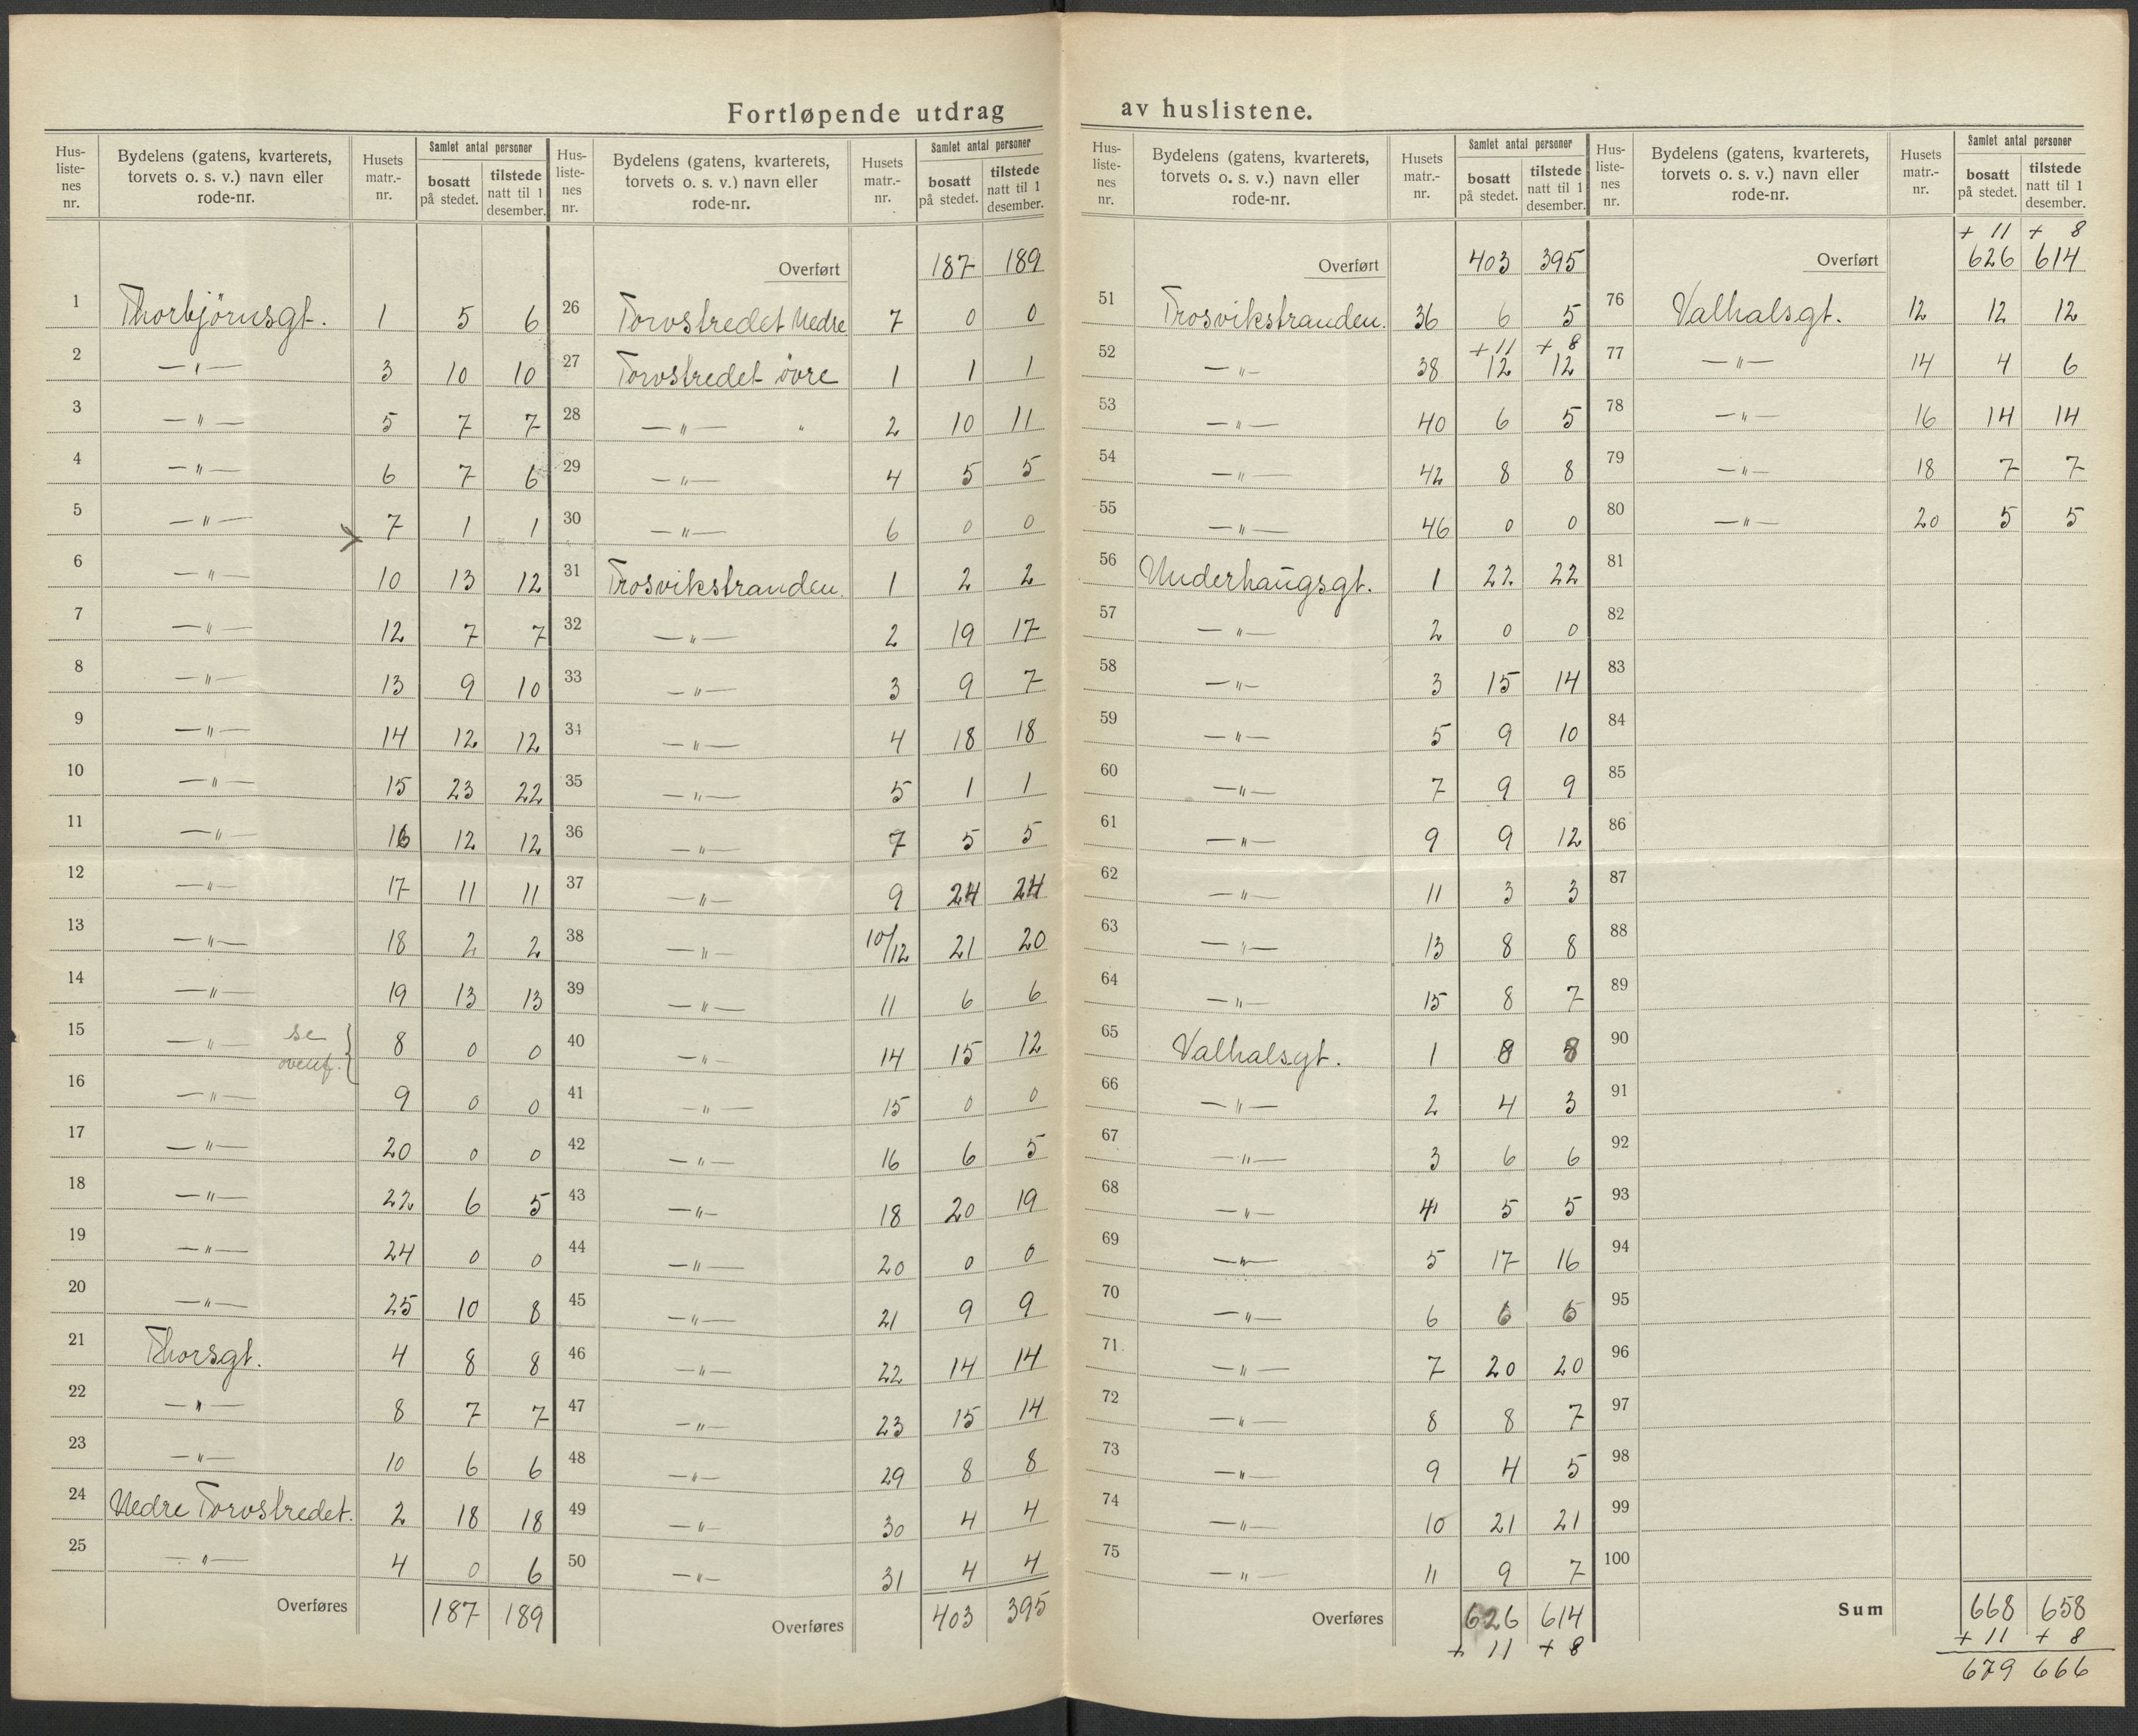 Fortløpende utdrag av huslistene.
Hus-listenes nr. | Bydelens (gatens, kvarterets, torvets o. s. v.) navn eller rode-nr. | Husets matr.-nr. | Samlet antal personer | bosatt på stedet. | tilstede natt til 1 desember.
1 Thorbjørnsgt. 1 5 6
2 —"— 3 10 10
3 —"— 5 7 7
4 —"— 6 7 6
5 —"— 7 1 1
6 —"— 10 13 12
7 —"— 12 7 7
8 —"— 13 9 10
9 —"— 14 12 12
10 —"— 15 23 22
11 —"— 16 12 12
12 —"— 17 11 11
13 —"— 18 2 2
14 —"— 19 13 13
15 —"— se 8 0 0
16 —"— 9 0 0
17 —"— 20 0 0
18 —"— 22 6 5
19 —"— 24 0 0
20 —"— 25 10 8
21 Thorsgt. 4 8 8
22 —"— 8 7 7
23 —"— 10 6 6
24 Nedre Torvstredet. 2 18 18
25 —"— 4 0 6
Overføres 187 189
Hus-listenes nr. | Bydelens (gatens, kvarterets, torvets o. s. v.) navn eller rode-nr. | Husets matr.-nr. | Samlet antal personer | bosatt på stedet. | tilstede natt til 1 desember.
Overført 187 189
26 Torvstredet Nedre 7 0 0
27 Torvstredet øvre 1 1 1
28 —"— " 2 10 11
29 —"— 4 5 5
30 —"— 6 0 0
31 Trosvikstranden. 1 2 2
32 —"— 2 19 17
33 —"— 3 9 7
34 —"— 4 18 18
35 —"— 5 1 1
36 —"— 7 5 5
37 —"— 9 24 24
38 —"— 10/12 21 20
39 —"— 11 6 6
40 —"— 14 15 12
41 —"— 15 0 0
42 —"— 16 6 5
43 —"— 18 20 19
44 —"— 20 0 0
45 —"— 21 9 9
46 —"— 22 14 14
47 —"— 23 15 14
48 —"— 29 8 8
49 —"— 30 4 4
50 —"— 31 4 4
Overføres 403 395
Hus-listenes nr. | Bydelens (gatens, kvarterets, torvets o. s. v.) navn eller rode-nr. | Husets matr.-nr. | Samlet antal personer | bosatt på stedet. | tilstede natt til 1 desember.
Overført 403 395
51 Trosvikstranden. 36 6 5
+ 11 + 8
52 —"— 38 12 12
53 —"— 40 6 5
54 —"— 42 8 8
55 —"— 46 0 0
56 Underhaugsgt. 1 22 22
57 —"— 2 0 0
58 —"— 3 15 14
59 —"— 5 9 10
60 —"— 7 9 9
61 —"— 9 9 12
62 —"— 11 3 3
63 —"— 13 8 8
64 —"— 15 8 7
65 Valhalsgt. 1 8 8
66 —"— 2 4 3
67 —"— 3 6 6
68 —"— 4 5 5
69 —"— 5 17 16
70 —"— 6 6 6
71 —"— 7 20 20
72 —"— 8 8 7
73 —"— 9 4 5
74 —"— 10 21 21
75 —"— 11 9 7
Overføres 626 614
+ 11 + 8
Hus-listenes nr. | Bydelens (gatens, kvarterets, torvets o. s. v.) navn eller rode-nr. | Husets matr.-nr. | Samlet antal personer | bosatt på stedet. | tilstede natt til 1 desember.
+ 11 + 8
Overført 626 614
76 Valhalsgt. 12 12 12
77 —"— 14 4 6
78 —"— 16 14 14
79 —"— 18 7 7
80 —"— 20 5 5
81
82
83
84
85
86
87
88
89
90
91
92
93
94
95
96
97
98
99
100
Sum 668 658
+ 11 + 8
679 666